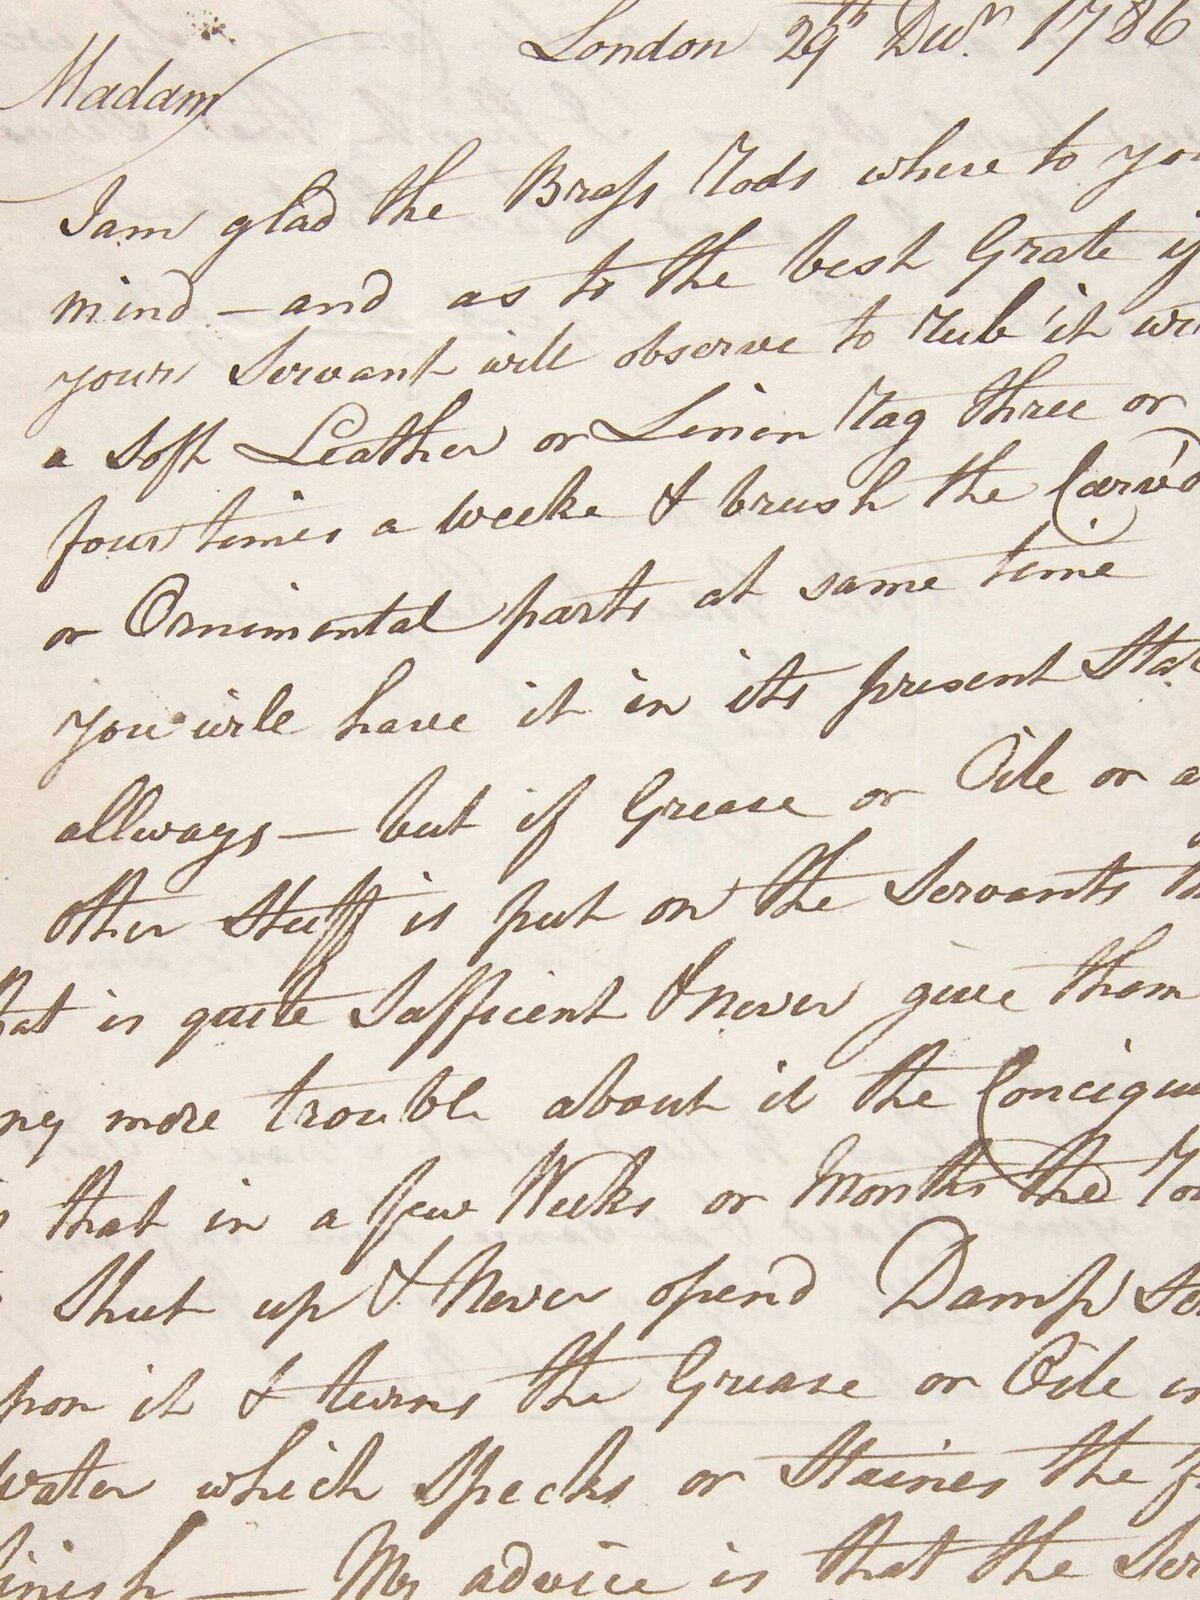 London 29th Decm. 1786
Madam
I am glad the Brass Rods where to you
mind – and as to the best Grate if
your Servant will observe to rub it wi
a Soft Leather or Linin Rag three or
four times a weeke & brush the Carv'd
or Ornimintal parts at same time
you will have it in its present Stat
allways – but if Grease or Oile or a
other Stuff is put on the Servants th
hat is quite Safficent & never give them
ny more trouble about it the Concique
s that in a few Weeks or Months the Ro
Shut up & Never opend Damp So
pon it & turns the Grease or Oile in
water which Specks or Staines the f
finish – My advice is that the Ser